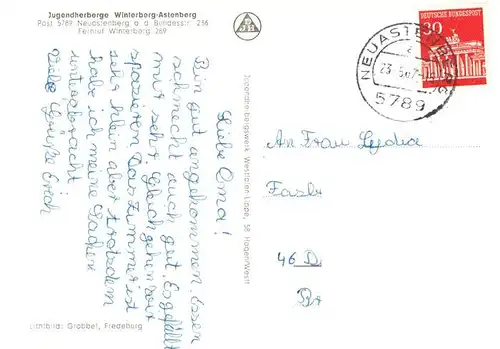 Jugendherberge Winterberg-Astenberg
Post 5789 Neuastenberg a. d. Bundesstr. 236
Fernruf Winterberg 269
Liebe Oma!
Bin gut angekommen. Essen
schmeckt auch gut. Es gefällt
mir sehr. Gleich gehen wir
spazieren. Das Zimmer ist
sehr klein aber trotzdem
habe ich meine Sachen
untergebracht
Viele Grüße Erich
Lichtbild: Grobbel, Fredeburg
Jugendherbergswerk Westfalen-Lippe, 58 Hagen/Westf.
NEUASTENBERG
a
5789
DEUTSCHE BUNDESPOST
30
An Frau Lydia
46 D